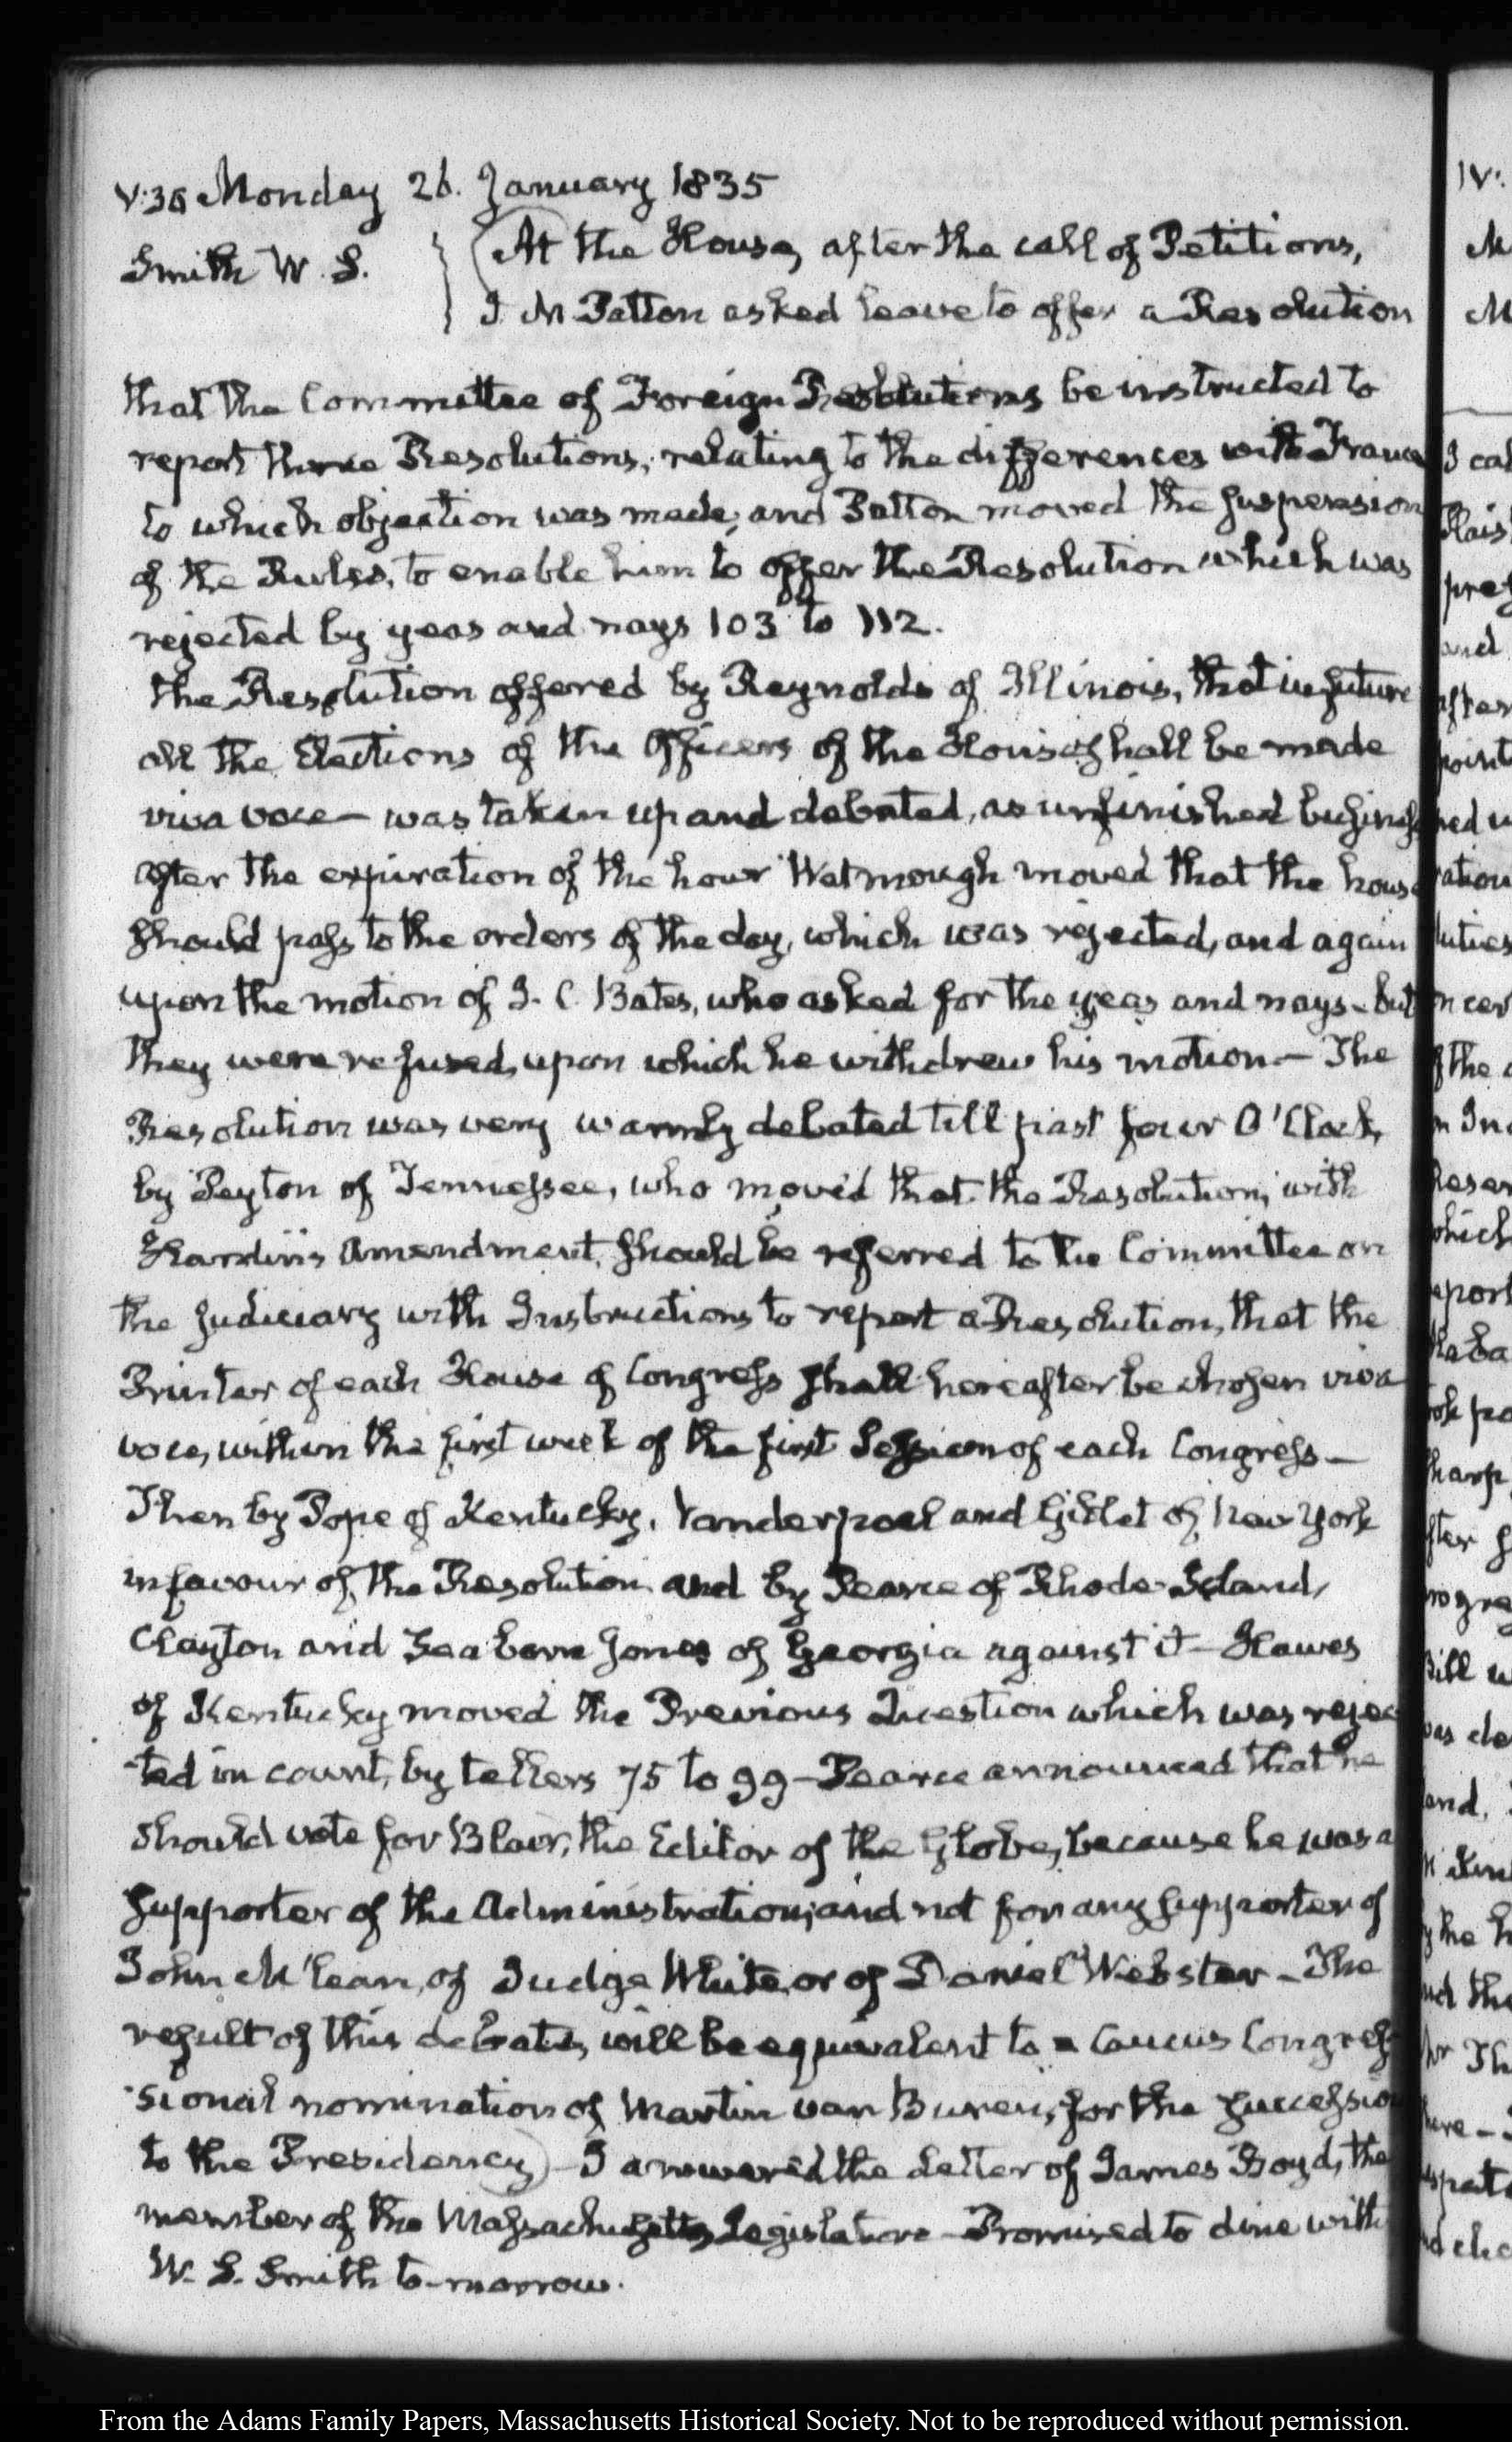 V:30 Monday 26. January 1835
Smith W. S. At the House, after the call of Petitions,
J. M Patton asked leave to offer a Resolution
that the Committee of Foreign Resolutions be instructed to
report three Resolutions, relating to the differences with France
to which objection was made, and Patton moved the suspension
of the Rules, to enable him to offer the Resolution which was
rejected by yeas and nays 103 to 112.
The Resolution offered by Reynolds of Illinois, that in future
all the Elections of the Officers of the House shall be made
viva voce— was taken up and debated, as unfinished business
after the expiration of the hour Watmough moved that the house
should pass to the orders of the day, which was rejected, and again
upon the motion of I. C. Bates, who asked for the yeas and nays— but
they were refused, upon which he withdrew his motion— The
Resolution was very warmly debated till past four O'Clock,
by Peyton of Tennessee, who moved that the Resolution, with
Hardin's Amendment, should be referred to the Committee on
the Judiciary with Instructions to report a Resolution, that the
Printer of each House of Congress shall hereafter be chosen viva
voce, within the first week of the first Session of each Congress—
Then by Pope of Kentucky, Vanderpoel and Gillet of New York
in favour of the Resolution and by Pearce of Rhode-Island,
Clayton and Seaborn Jones of Georgia against it— Hawes
of Kentucky moved the Previous Question which was rejec
ted in count, by tellers 75 to 99— Pearce announced that he
should vote for Blair, the Editor of the Globe, because he was a
supporter of the Administration, and not for any supporter of
John M'Lean, of Judge White, or of Daniel Webster— The
result of this debate, will be equivalent to a Caucus Congres
sional nomination of Martin van Buren, for the succession
to the Presidency) I answered the Letter of James Boyd, the
member of the Massachusetts Legislature— Promised to dine with
W. S. Smith to-morrow.
From the Adams Family Papers, Massachusetts Historical Society. Not to be reproduced without permission.